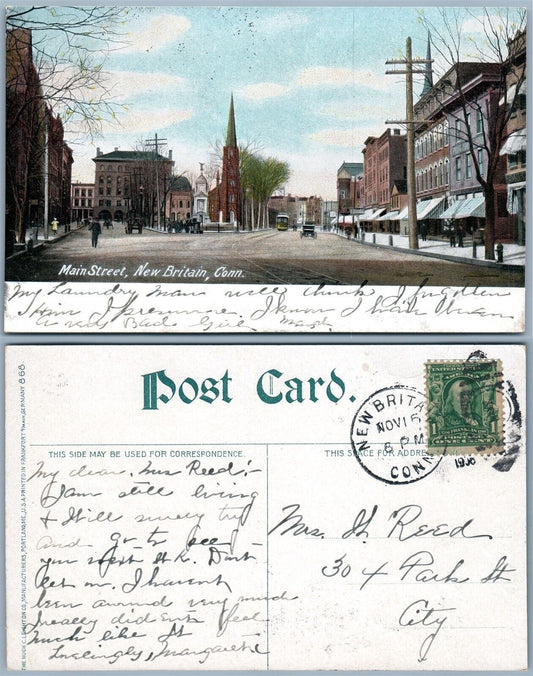 Main Street, New Britain, Conn.
My Laundry man will think I forgotten
him I presume. I know I have been
a very Bad Girl
Post Card.
THIS SIDE MAY BE USED FOR CORRESPONDENCE.
THIS SPACE FOR ADDRESS
NEW BRITAIN
NOV 15
8 PM
CONN.
1906
UNITED STATES
1
THE HUGH C. LEIGHTON CO., MANUFACTURERS, PORTLAND, ME., U.S.A. PRINTED IN FRANKFORT GERMANY 868
My dear Mrs Reed:-
I am still living
& Will surely try
and go to see
you next wk. Don't
let on. I haven't
been around very much
really did not feel
much like it
Lovingly, Margaret
Mrs. H. Reed
304 Park St
City